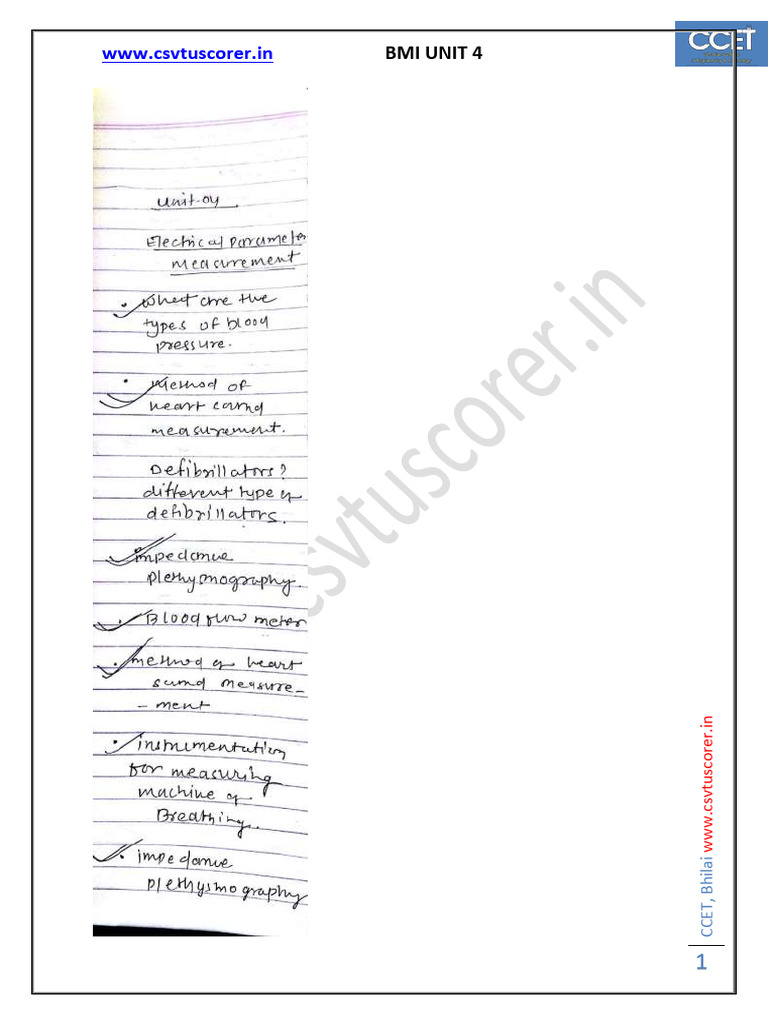 www.csvtuscorer.in BMI UNIT 4
CCET
Unit-04.
Electrical Parameter
measurement
• What are the
types of blood
pressure.
• Method of
heart
measurement.
Defibrillators?
different type of
defibrillators.
• impedance
plethysmography.
• Blood flow meter
• method of heart
sound measure-
- ment
• instrumentation
for measuring
machine of
Breathing.
• impedance
plethysmography
csvtuscorer.in
CCET, Bhilai www.csvtuscorer.in
1